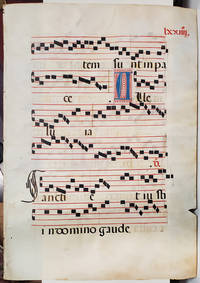 lxxiiij
tem sunt in pa
ce Alle
lu ia
Sancti et iusti
in domino gaude